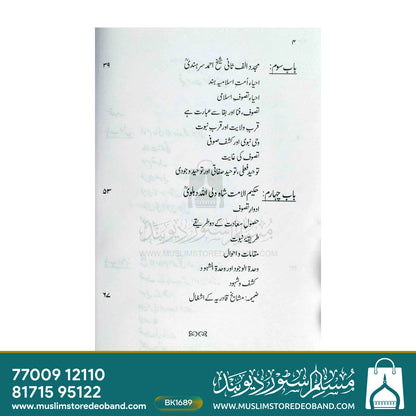 ۴
باب سوم: مجدد الف ثانی شیخ احمد سرہندیؒ ۳۹
احیاء امت اسلامیہ ہند
احیاء تصوف اسلامی
تصوف، فنا اور بقا سے عبارت ہے
قرب ولایت اور قرب نبوت
وحی نبوی اور کشف صوفی
تصوف کی غایت
توحید فعلی، توحید صفاتی اور توحید وجودی
باب چہارم: حکیم الامت شاہ ولی اللہ دہلویؒ ۵۳
ادوار تصوف
حصول سعادت کے دو طریقے
طریقۂ نبوت
مقامات و احوال
وحدۃ الوجود اور وحدۃ الشہود
کشف و شہود
ضمیمہ: مشائخ قادریہ کے اشغال ۶۷
WWW.MUSLIMSTOREDEOBAND.COM
77009 12110
81715 95122
www.muslimstoredeoband.com
BK1689
مسلم سٹور دیوبند
WWW.MUSLIMSTOREDEOBAND.COM